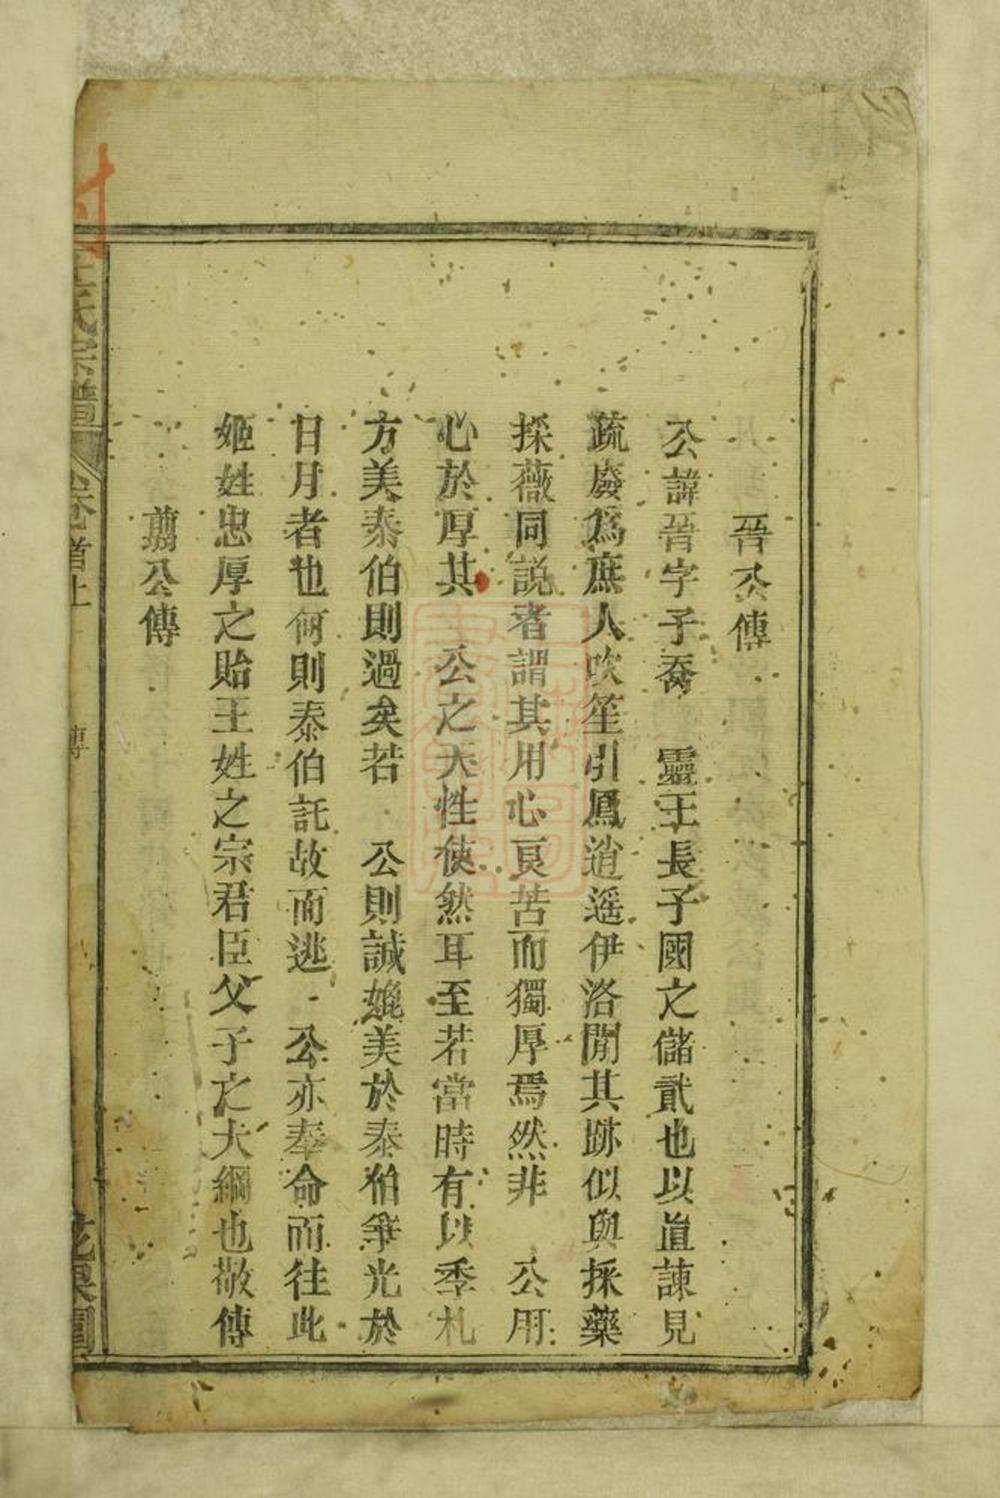 晉公傳
公諱晉字子喬 靈王長子國之儲貳也以直諫見
疏廢爲庶人吹笙引鳳逍遥伊洛閒其跡似與採藥
採薇同説者謂其用心良苦而獨厚焉然非 公用
心於厚其 公之天性使然耳至若當時有以季札
方美泰伯則過矣若 公則誠媲美於泰伯爭光於
日月者也何則泰伯託故而逃 公亦奉命而往此
姬姓忠厚之貽王姓之宗君臣父子之大綱也敬傳
翦公傳
王氏宗譜 卷首上 傳 花果園